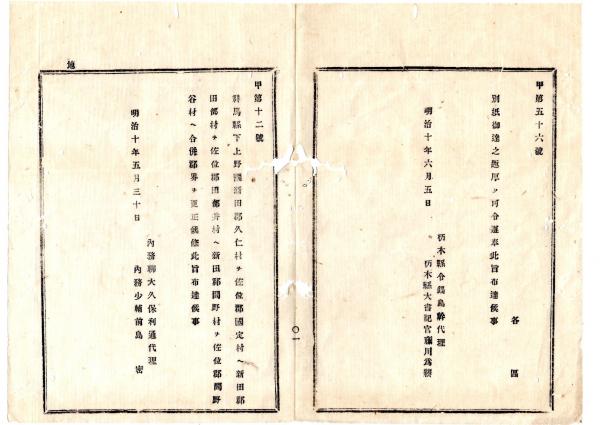 甲第五十六號
各 區
別紙御達之趣厚ク可令遵奉此旨布達候事
明治十年六月五日
栃木縣令鍋島幹代理
栃木縣大書記官藤川爲親
〇一
地
甲第十二號
群馬縣下上野國新田郡久仁村ヲ佐位郡國定村ヘ新田郡
田部村ヲ佐位郡田部井村ヘ新田郡間野村ヲ佐位郡間野
谷村ヘ合併郡界ヲ更正候條此旨布達候事
明治十年五月三十日
內務卿大久保利通代理
內務少輔前島 密